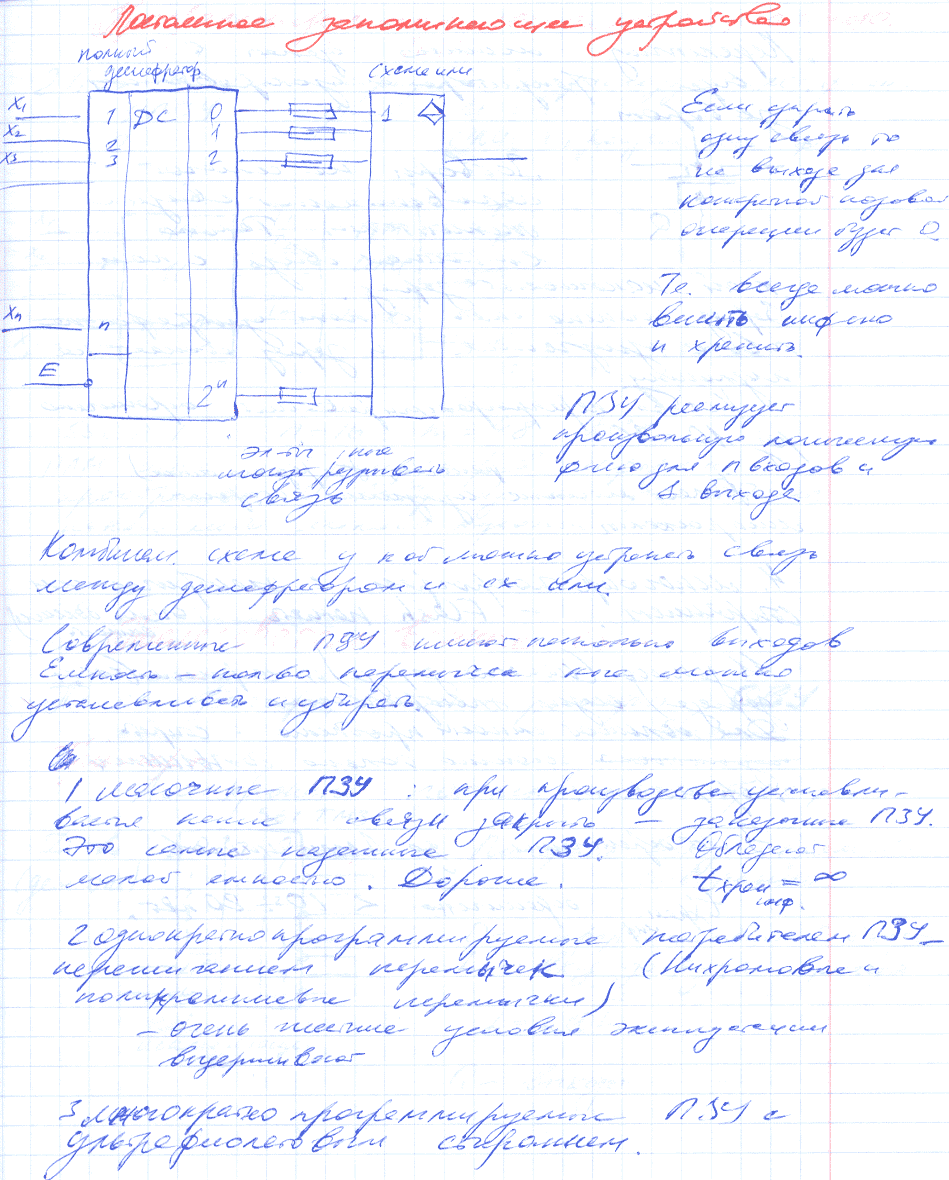 Постоянное запоминающее устройство
полный
дешифратор
схема или
X1
X2
X3
Xn
E
1
2
3
n
DC
0
1
2
2ⁿ
1
Если убрать
одну связь то
на выходе для
конкретной кодовой
операции будет 0
Те. всегда можно
инф
и хранить.
эл-ты, кот
могут разрывать
связь
ПЗУ реализует
произвольную логическую
ф-ию для n входов и
1 выхода
Комбинац. схема у кот можно устранить связь
между дешифратором и сх или.
Современные ПЗУ имеют несколько выходов
Емкость – кол-во перемычек кот можно
устанавливать и убирать.
1 масочные ПЗУ : при производстве устанавли-
вается какие связи закрыть – заказные ПЗУ.
Это самые надежные ПЗУ. Обладают
малой емкостью. Дорогие. tхран = ∞
инф.
2 однократно программируемые потребителем ПЗУ –
пережиганием перемычек (Нихромовые и
поликремниевые перемычки)
– очень жесткие условия эксплуатации
выдерживают
3 многократно программируемые ПЗУ с
ультрафиолетовым стиранием.